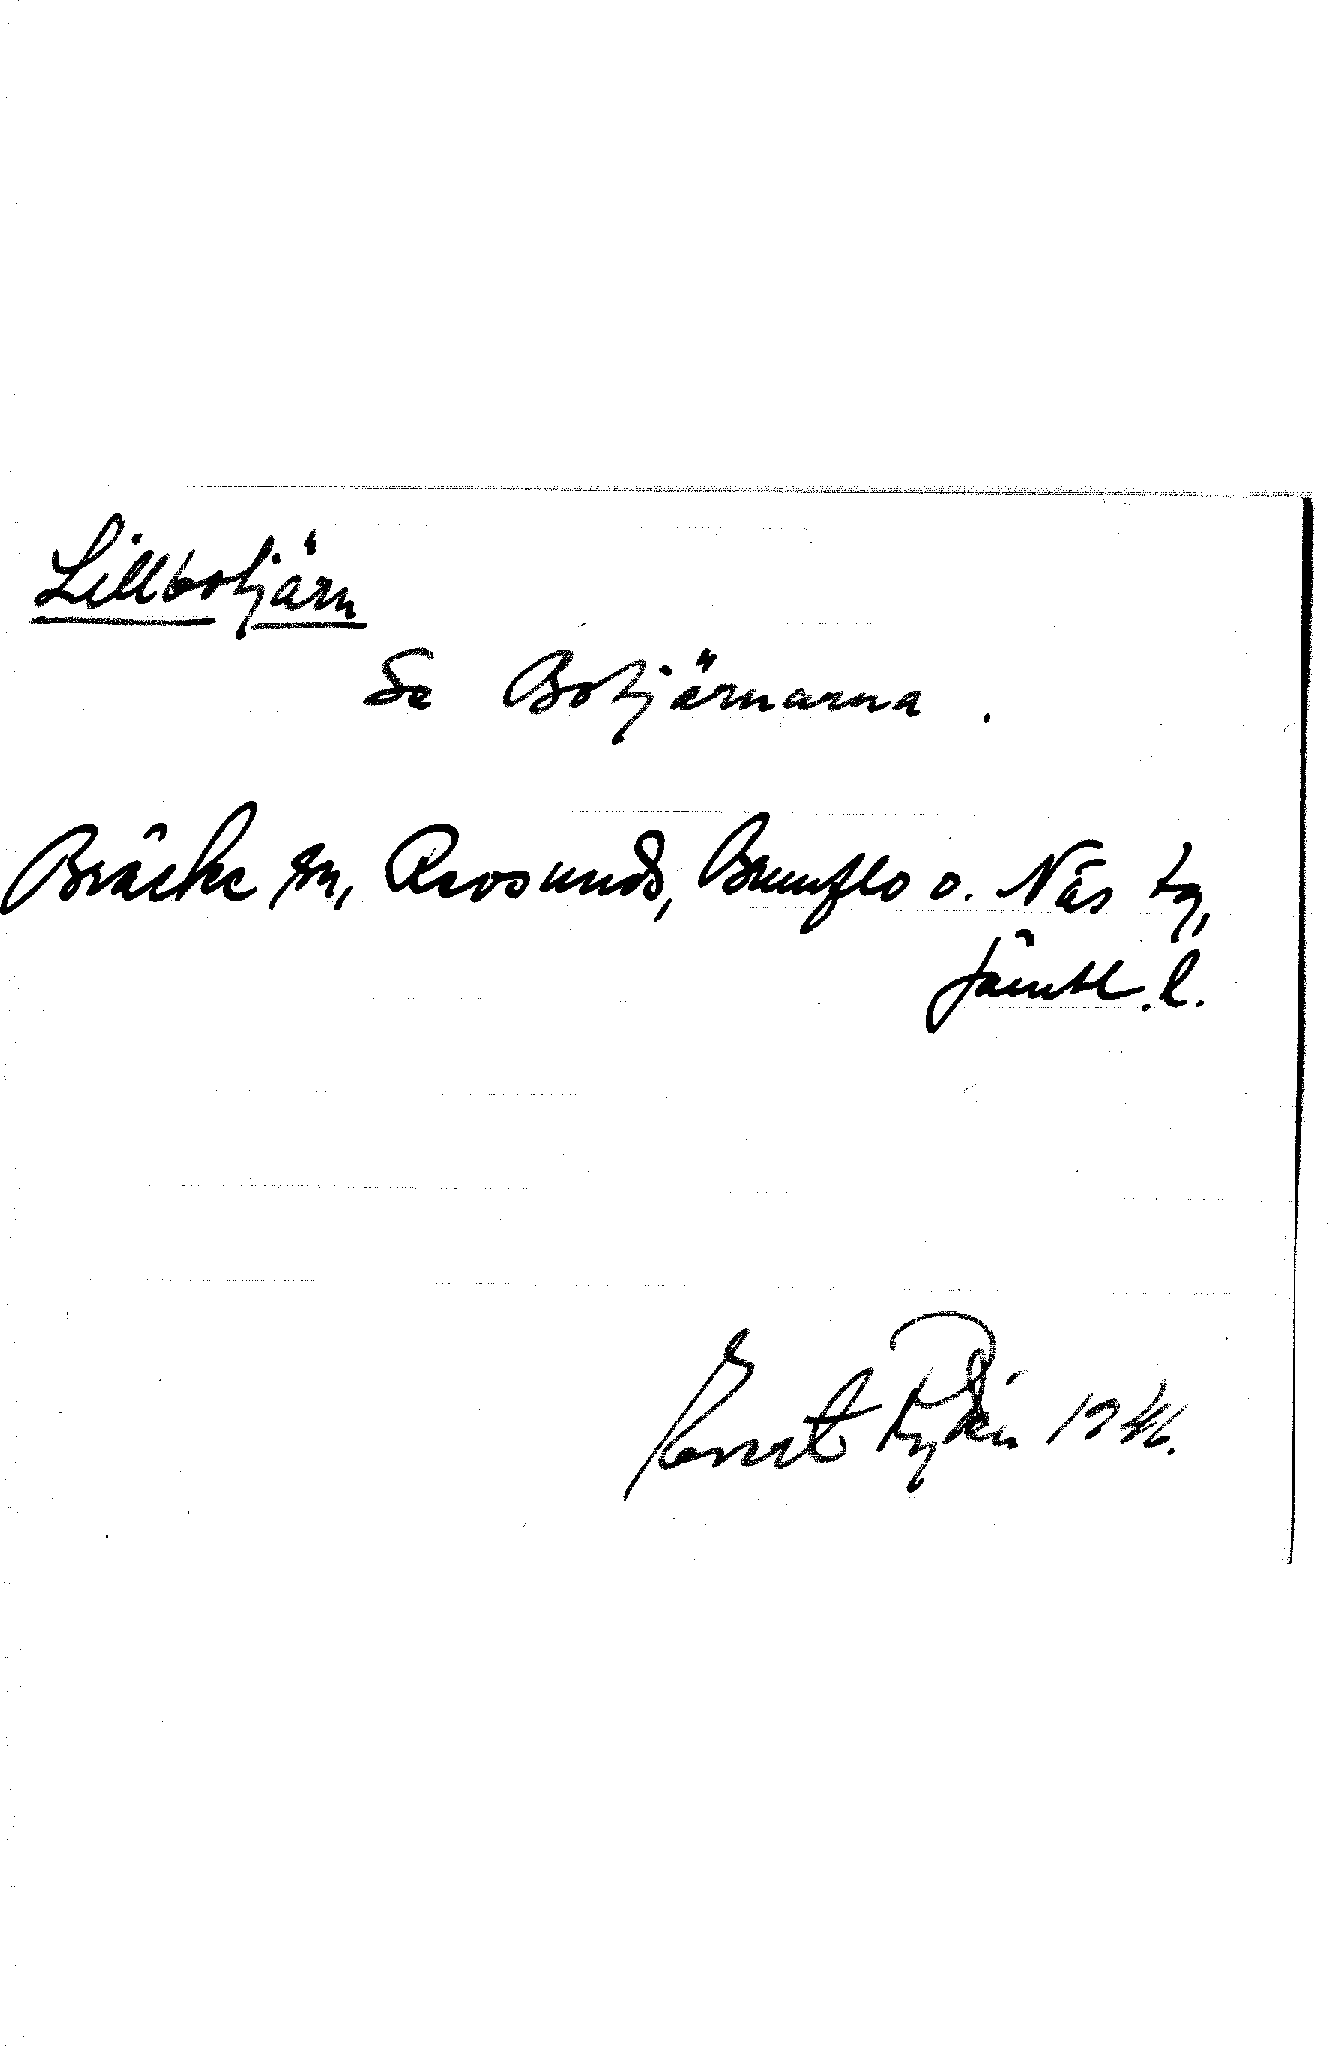 Lillbotjärn
Se Botjärnarna.
Bräcke sn, Revsunds, Brunflo o. Näs tg,
Jämtl. l.
Ernst Rydén 1946.